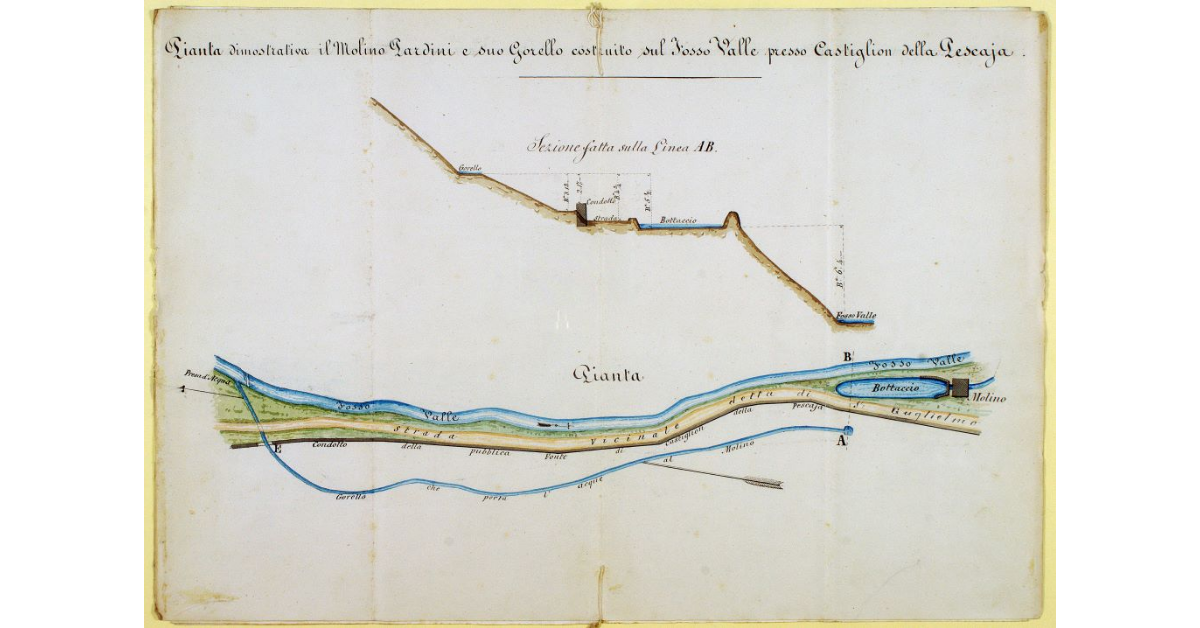 Pianta dimostrativa il Molino Pardini e suo Gorello costruito sul Fosso Valle presso Castiglion della Pescaja.
Sezione fatta sulla Linea AB.
Gorello
Condotto
Strada
Bottaccio
Fosso Valle
Pianta
B
Fosso Valle
Presa d'Acqua
Bottaccio
Molino
Fosso Valle
Strada Vicinale della di S. Guglielmo
A
E
Condotto della pubblica Fonte di Castiglion della Pescaja
Gorello che porta l'acque al Molino